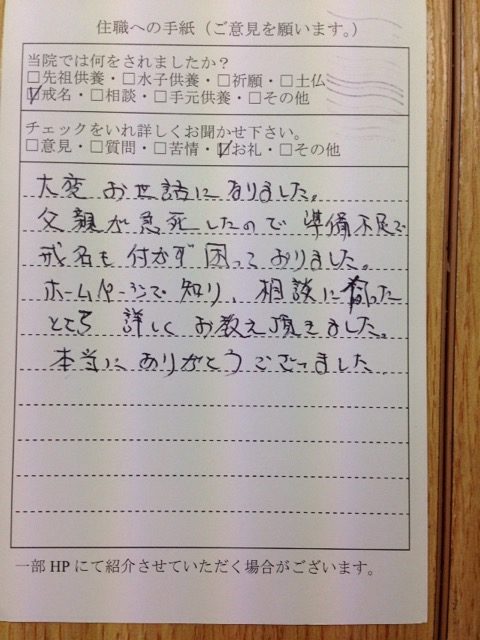 住職への手紙（ご意見を願います。）
当院では何をされましたか？
□先祖供養・□水子供養・□祈願・□土仏
☑戒名・□相談・□手元供養・□その他
チェックをいれ詳しくお聞かせ下さい。
□意見・□質問・□苦情・☑お礼・□その他
大変お世話になりました。
父親が急死したので準備不足で
戒名も付かず困っておりました。
ホームページで知り、相談に
ところ詳しくお教え頂きました。
本当にありがとうございました。
一部HPにて紹介させていただく場合がございます。